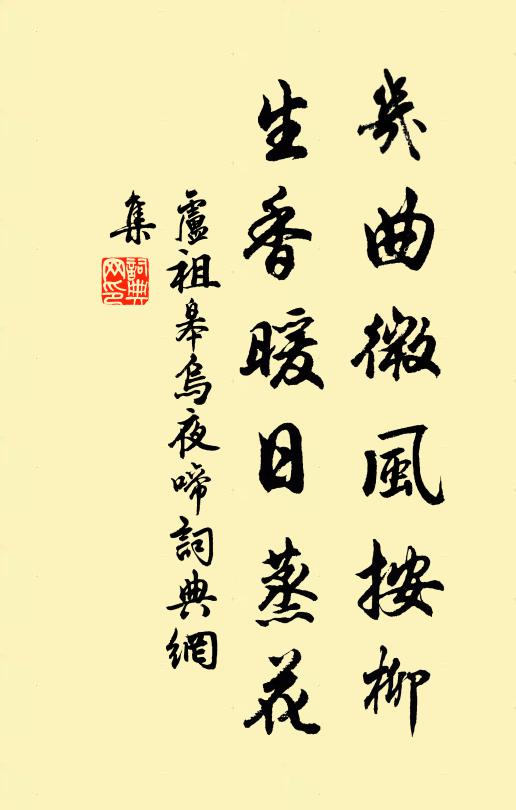 几曲微風按柳
生香暖日蒸花
盧祖皋烏夜啼詞典網
集
詞典網印